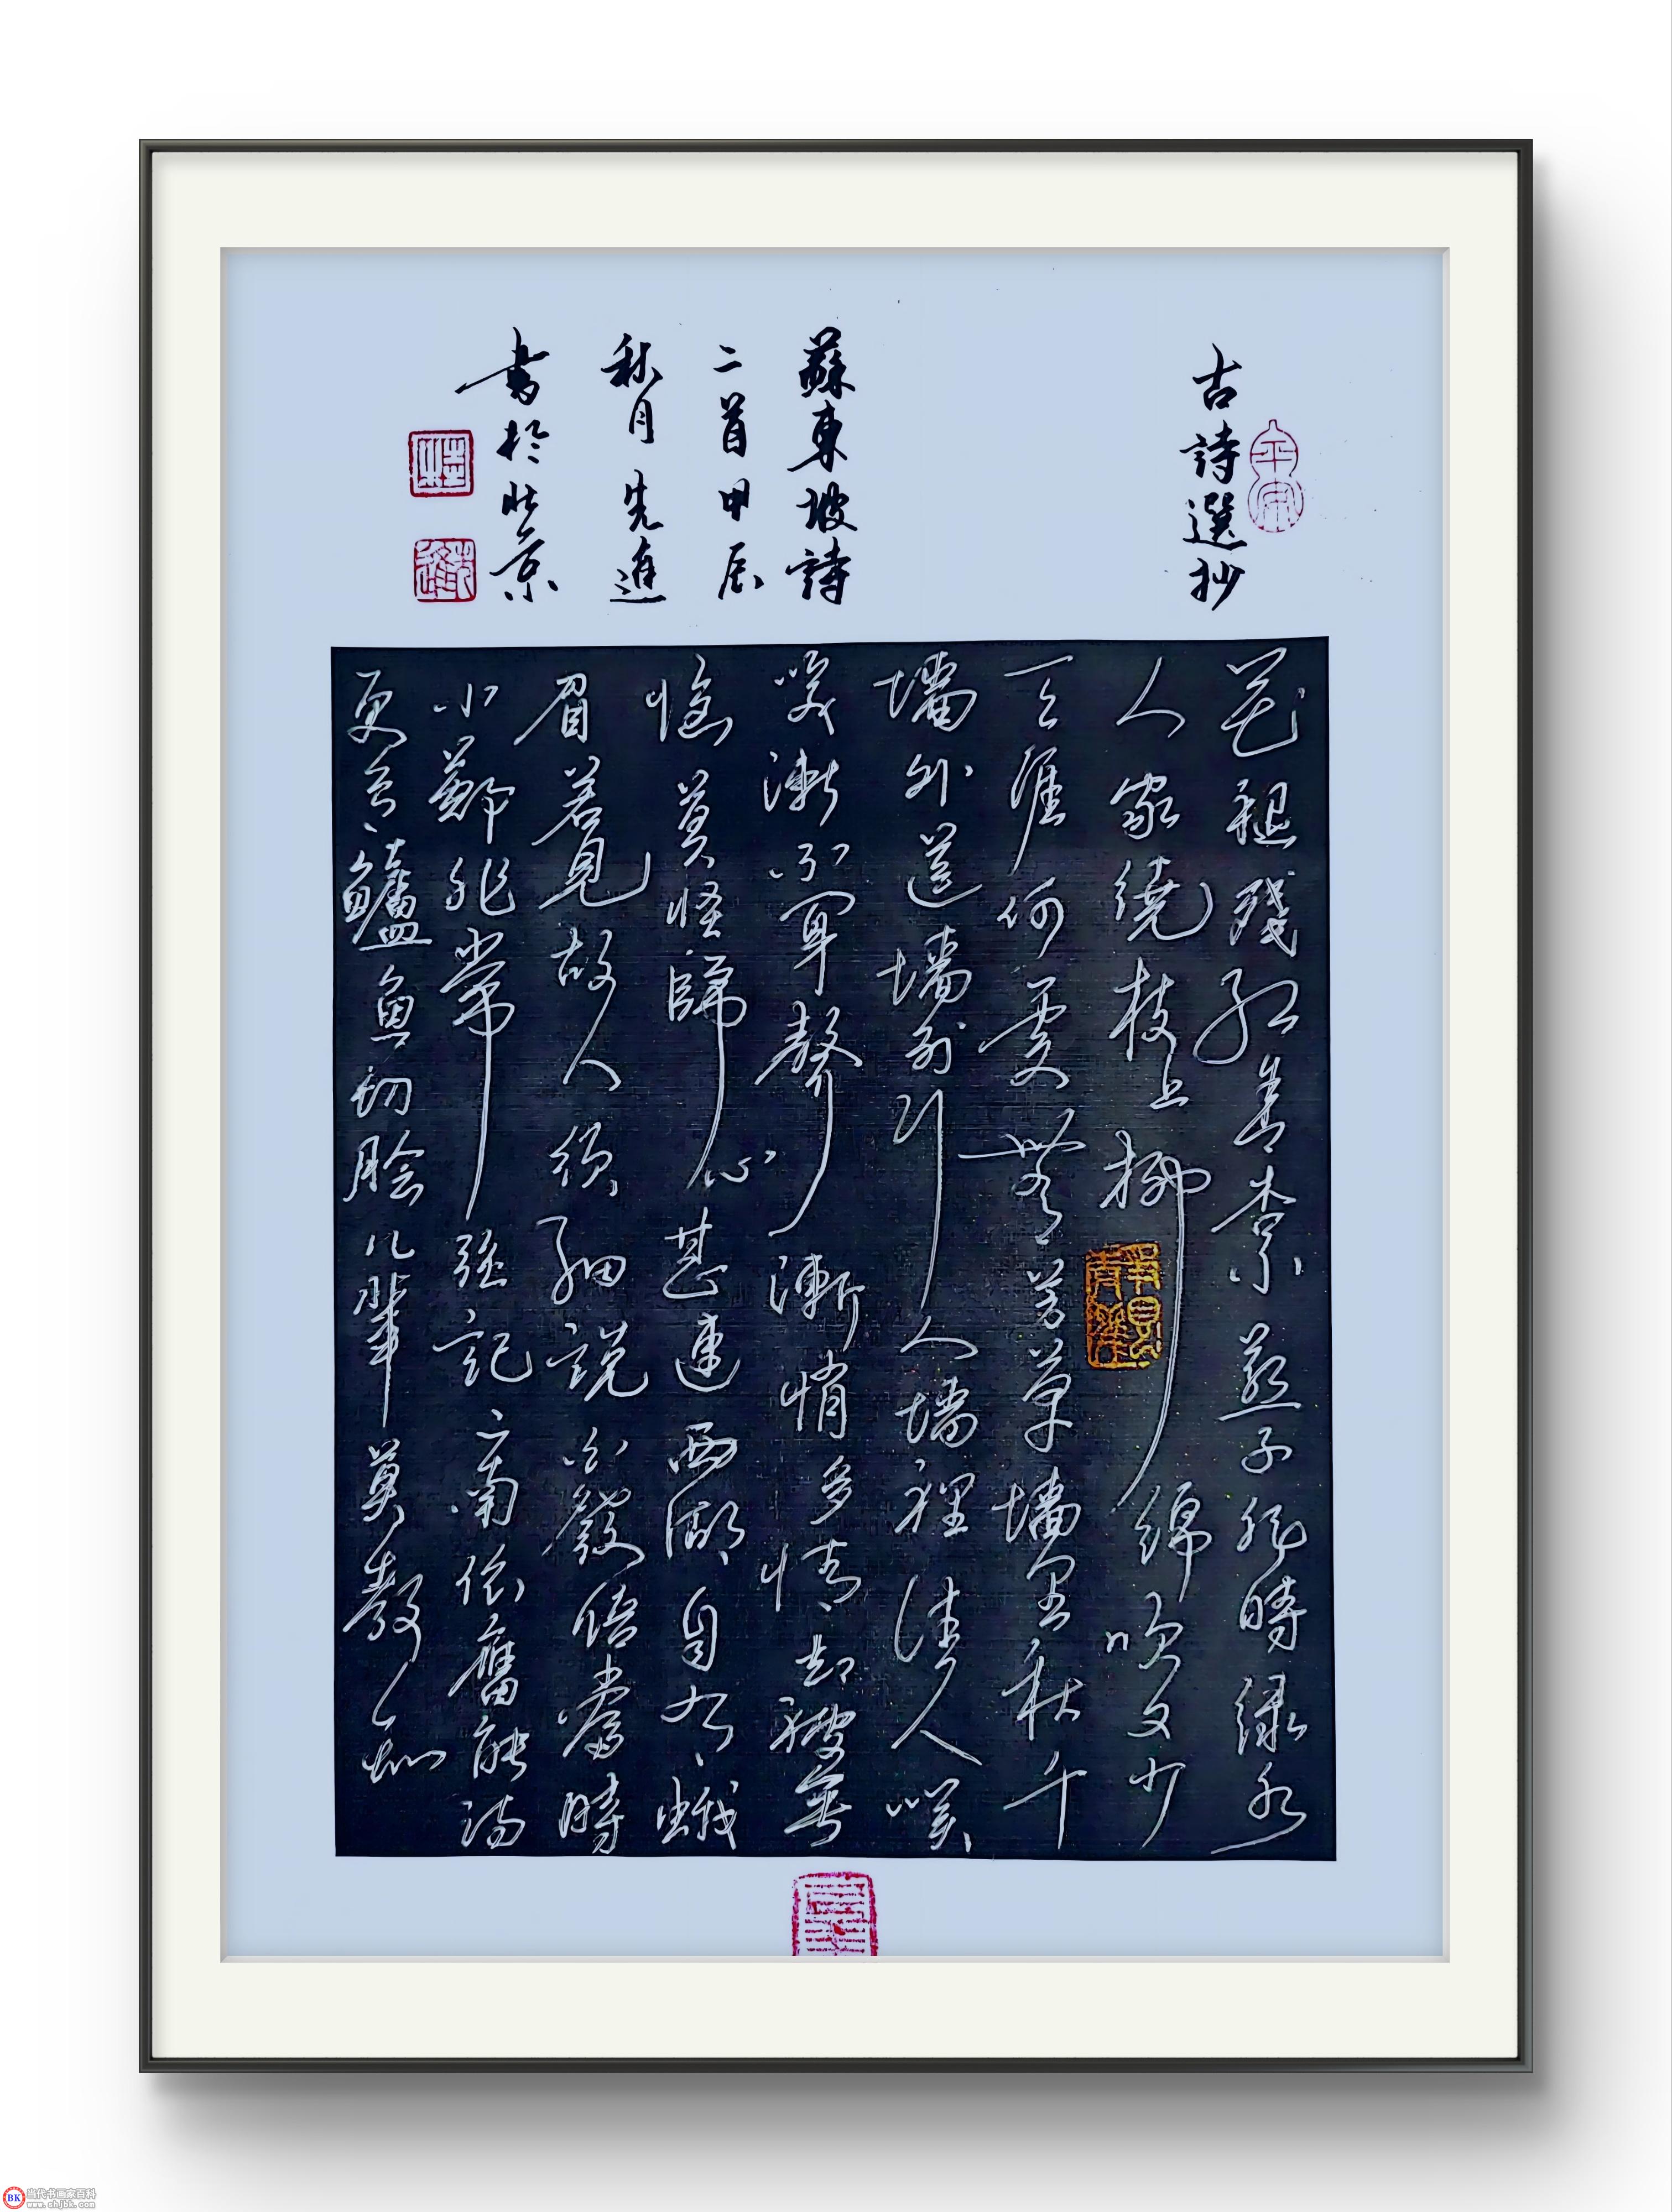 古詩選抄
蘇東坡詩
二首甲辰
秋月先進
書於北京
花褪殘紅青杏小燕子飛時綠水
人家繞枝上柳綿吹又少
天涯何處無芳草墻里秋千
墻外道墻外行人墻裡佳人笑
笑漸不聞聲漸悄多情却被無
惱莫怪歸心甚速西湖自有蛾
眉若見故人須細說白髮倍當時
小鄭非常強記二南依舊能詩
更有鱸魚切膾兒輩莫教知
平安
BK
当代书画家百科
www.shjbk.com